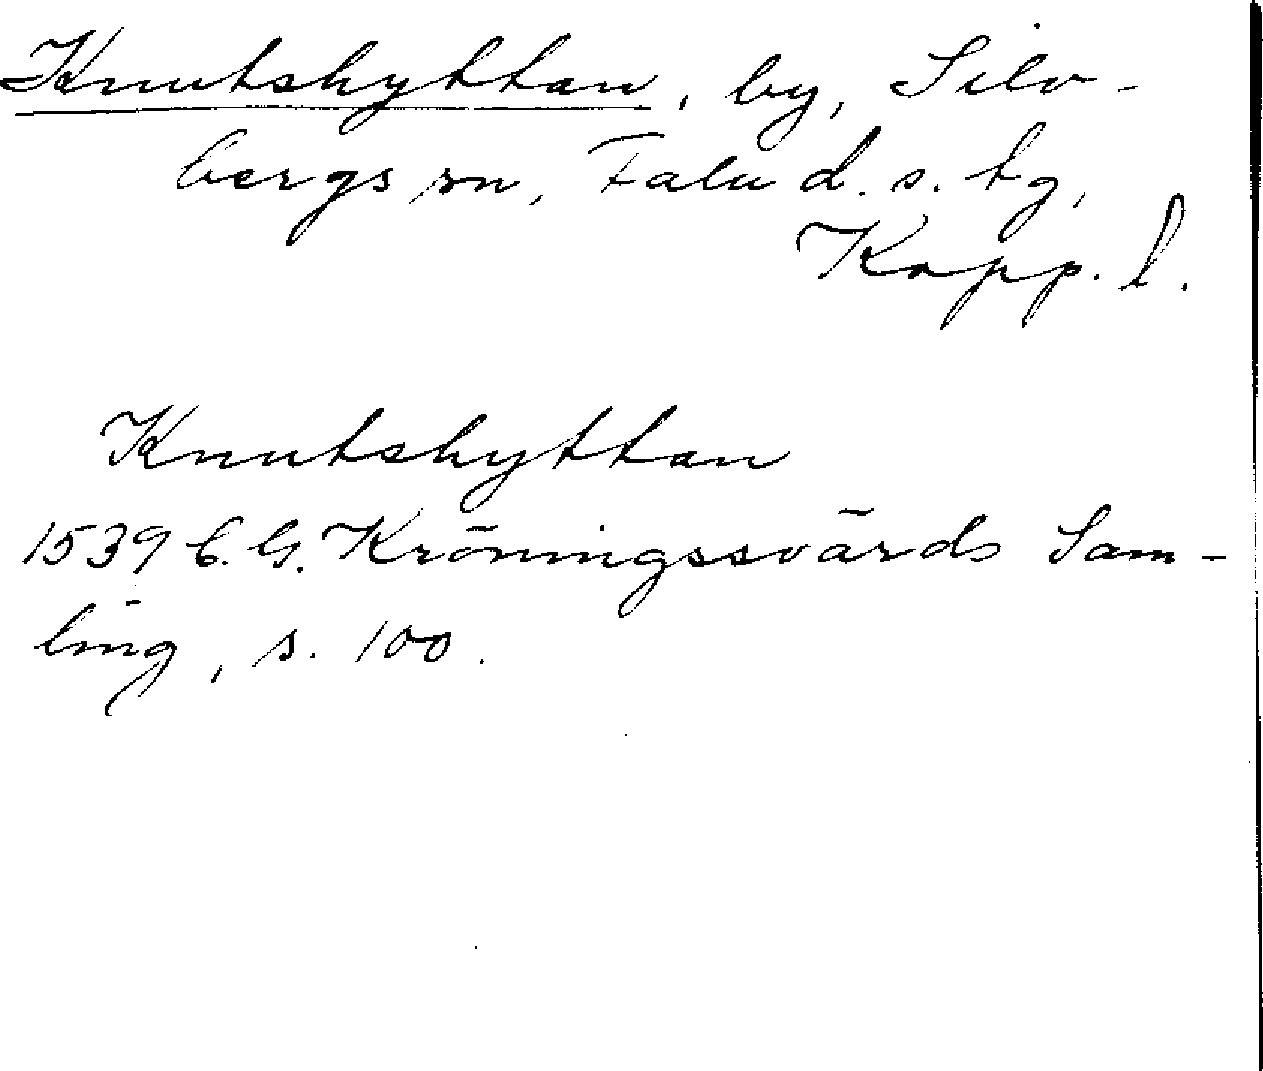 Knutshyttan, by, Silv-
bergs sn, Falu d. s. tg,
Kopp. l.
Knutshyttan
1539 C. G. Kröningssvärds Sam-
ling, s. 100.